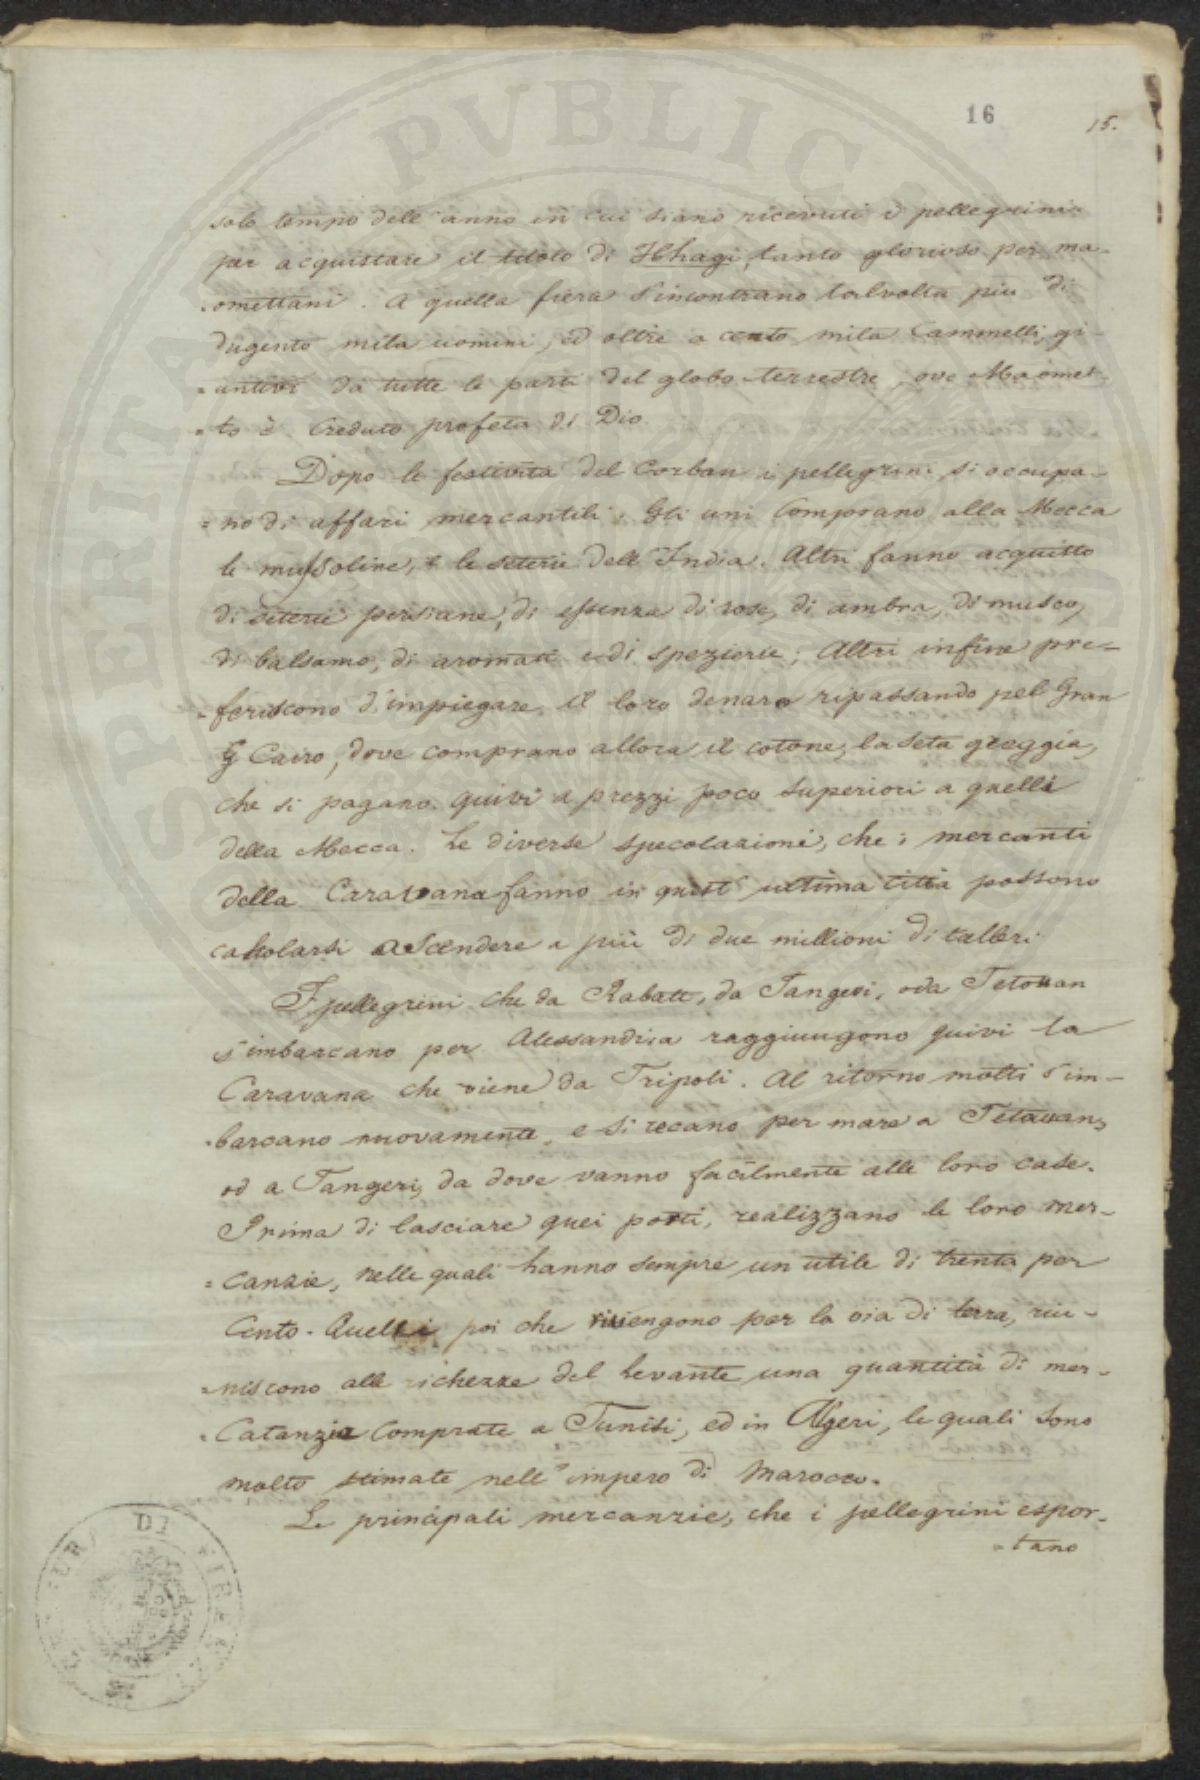 16
15.
solo tempo dell'anno in cui siano ricevuti i pellegrini
per acquistare il titolo di Hhagi, tanto glorioso per ma-
-omettani. A quella fiera s'incontrano talvolta più di
dugento mila uomini, ed oltre a cento mila Cammelli, gi-
-untivi da tutte le parti del globo terrestre, ove Maomet-
-to è creduto profeta di Dio.
Dopo le festività del Corban i pellegrini si occupa-
=no di affari mercantili. Gli uni Comprano alla Mecca
le mussoline, e le seterie dell'India. Altri fanno acquisto
di seterie persiane, di essenza di rose, di ambra, di musco,
di balsamo, di aromati e di spezierie; Altri infine pre-
-feriscono d'impiegare il loro denaro ripassando pel Gran
Cairo, dove comprano allora il cotone, la seta greggia,
che si pagano quivi a prezzi poco superiori a quelli
della Mecca. Le diverse specolazioni, che i mercanti
della Caravana fanno in quest'ultima città possono
calcolarsi ascendere a più di due millioni di talleri.
I pellegrini che da Rabatt, da Tangeri, o da Tetouan
s'imbarcano per Alessandria raggiungono quivi la
Caravana che viene da Tripoli. Al ritorno molti s'im-
-barcano nuovamente, e si recano per mare a Tetauan,
od a Tangeri, da dove vanno facilmente alle loro case.
Prima di lasciare quei porti, realizzano le loro mer-
=canzie, nelle quali hanno sempre un utile di trenta per
Cento. Quelli poi che rivengono per la via di terra, riu-
=niscono alle richezze del Levante una quantità di mer-
-Catanzie Comprate a Tunisi, ed in Algeri, le quali sono
molto stimate nell'impero di Marocco.
Le principali mercanzie, che i pellegrini espor-
-tano